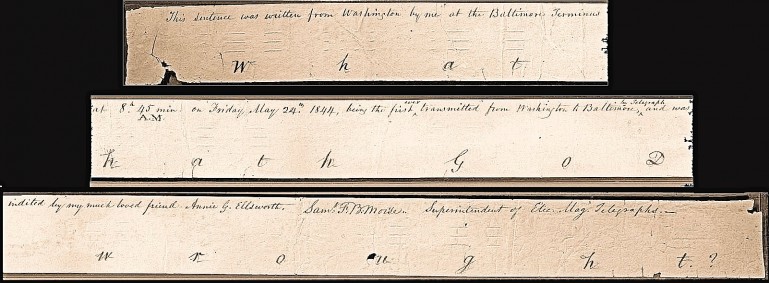 This sentence was written from Washington by me at the Baltimore Terminus
W h a t
at 8h 45 min A.M. on Friday May 24th 1844, being the first ever transmitted from Washington to Baltimore, by Telegraph and was
h a t h G o D
indited by my much loved friend Annie G. Ellsworth. Saml. F. B. Morse. Superintendent of Elec. Mag. Telegraphs.—
w r o u g h t ?